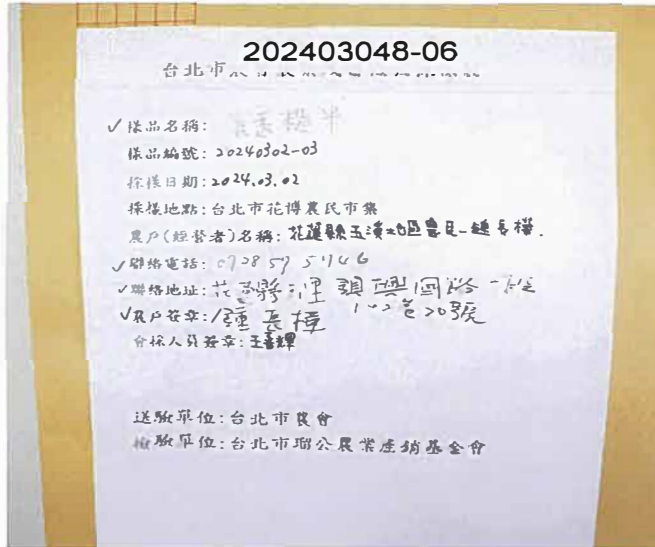 202403048-06
台北市
✓樣品名稱:
樣品編號: 20240302-03
採樣日期: 2024.03.02
採樣地點: 台北市花博農民市集
農戶(經營者)名稱: 花蓮縣玉溪地區農民-鍾長樟.
✓聯絡電話:
✓聯絡地址: 花蓮縣 里鎮興國路一段
1 2巷20號
✓農戶簽章: 鍾長樟
會採人員簽章: 王喜輝
送驗單位: 台北市農會
檢驗單位: 台北市瑠公農業產銷基金會